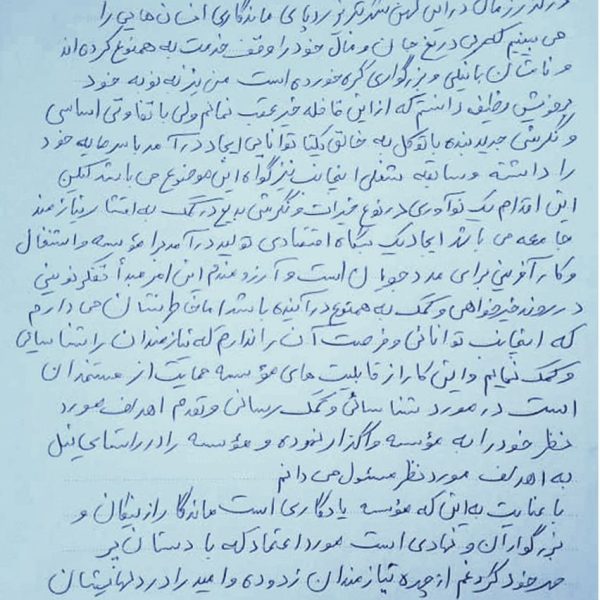 در گذر زمان در این کهن شهر نیز ردپای ماندگاری انسان‌هایی را
می بینیم که بی دریغ جان و مال خود را وقف خدمت به همنوع کرده اند
و نامشان با نیکی و بزرگواری گره خورده است من نیز به نوبه خود
بر خویش وظیفه دانستم که از این قافله خیر عقب نمانم ولی با تفاوتی اساسی
و نگرشی جدید بنده با توکل به خالق یکتا توانایی ایجاد درآمد با سرمایه خود
را داشته و سابقه شغلی اینجانب نیز گواه این موضوع می باشد لیکن
این اقدام یک نوآوری در نوع خیرات و نگرشی بدیع در کمک به اقشار نیازمند
جامعه می باشد ایجاد یک بنگاه اقتصادی تولید درآمد برا مؤسسه و اشتغال
و کارآفرینی برای مدد جویان است و آرزومندم این امر مبدأ تفکر نوینی
در روند خیرخواهی و کمک به همنوع در آینده باشد اما خاطرنشان می دارم
که اینجانب توانائی و فرصت آن را ندارم که نیازمندان را شناسایی
و کمک نمایم و این کار از قابلیت های مؤسسه حمایت از مستمندان
است در مورد شناسائی و کمک رسانی و تقدم اهداف مورد
نظر خود را به مؤسسه واگذار نموده و مؤسسه را در راستای نیل
به اهداف مورد نظر مسئول می دانم
با عنایت به این که مؤسسه یادگاری است ماندگار از نیکان و
بزرگواران و نهادی است مورد اعتماد که با دستان پر
مهر خود گرد غم از چهره نیازمندان زدوده و امید را در دلهایشان